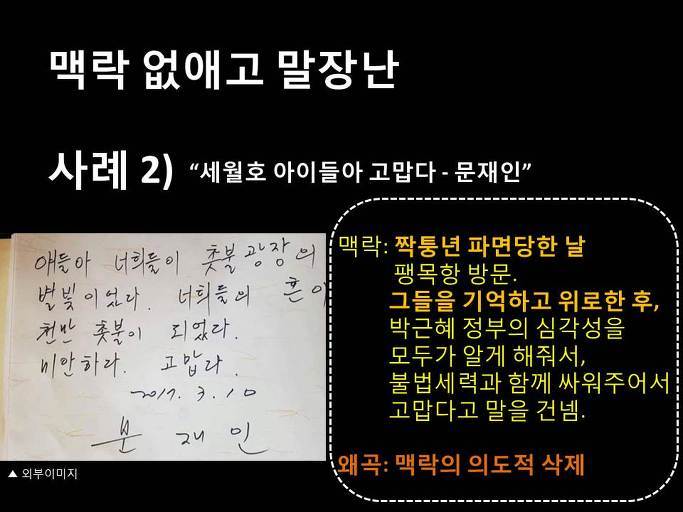 맥락 없애고 말장난
사례 2) “세월호 아이들아 고맙다 - 문재인”
애들아 너희들이 촛불광장의
별빛이었다. 너희들의 혼이
천만 촛불이 되었다.
미안하다. 고맙다.
2017. 3. 10
문 재 인
▲ 외부이미지
맥락: 짝퉁년 파면당한 날
팽목항 방문.
그들을 기억하고 위로한 후,
박근혜 정부의 심각성을
모두가 알게 해줘서,
불법세력과 함께 싸워주어서
고맙다고 말을 건넴.
왜곡: 맥락의 의도적 삭제